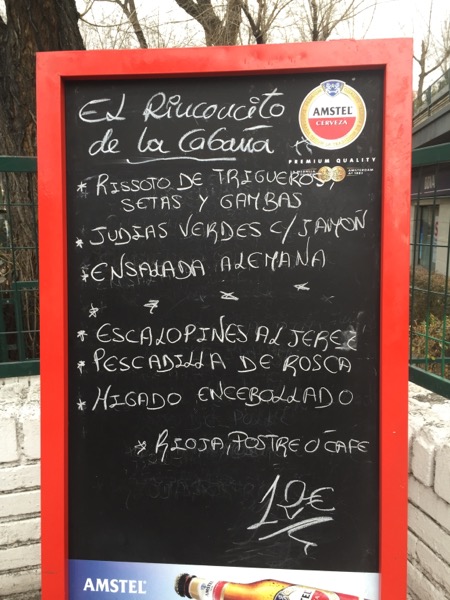 El Rinconcito
de La Cabaña
AMSTEL
CERVEZA
PREMIUM QUALITY
* RISSOTO DE TRIGUEROS,
SETAS Y GAMBAS
* JUDIAS VERDES C/JAMÓN
* ENSALADA ALEMANA
* ESCALOPINES AL JEREZ
* PESCADILLA DE ROSCA
* HIGADO ENCEBOLLADO
* RIOJA, POSTRE Ó CAFE
10€
AMSTEL